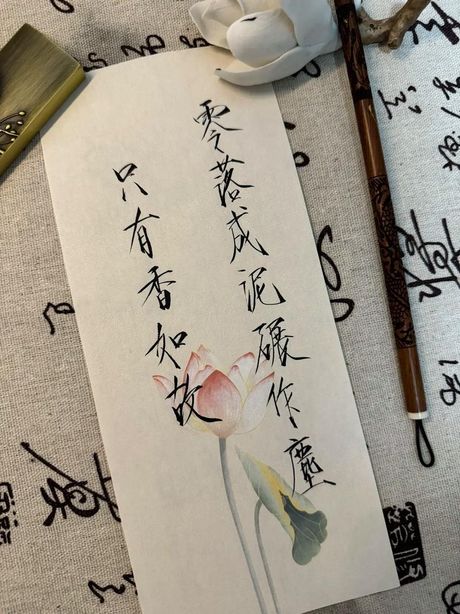 零落成泥碾作塵
只有香如故